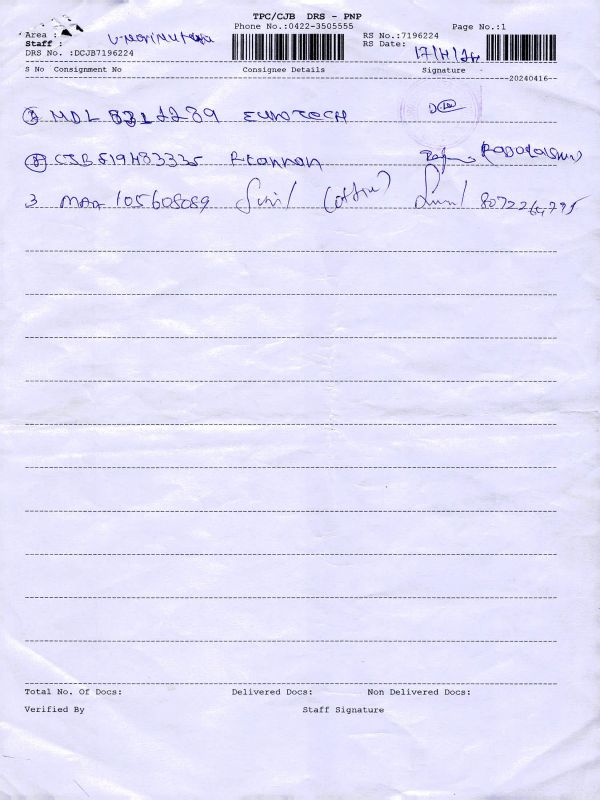 TPC/CJB DRS - PNP
Phone No.:0422-3505555 Page No.:1
Area :
Staff :
RS No.:7196224
RS Date: 17/4/24
DRS No. :DCJB7196224
S No Consignment No Consignee Details Signature
20240416
1 MDL 2239 EUROTECH
2 CJB 819483335 R-Kannan
3 MAA 105608089 Sunil (office) Sunil
Total No. Of Docs: Delivered Docs: Non Delivered Docs:
Verified By Staff Signature